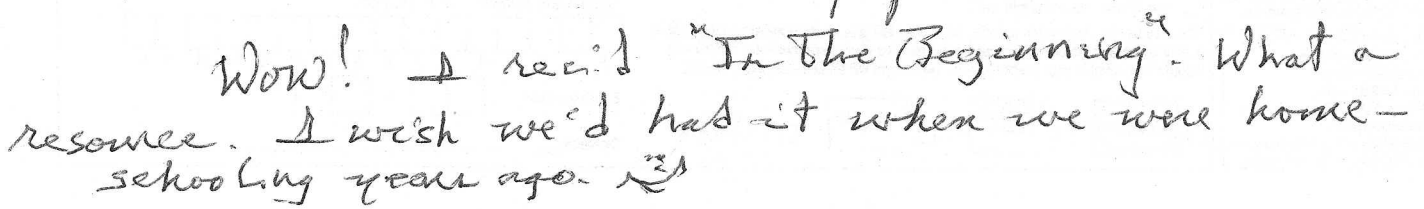 Wow! I rec'd "In The Beginning". What a
resource. I wish we'd had it when we were home-
schooling years ago.